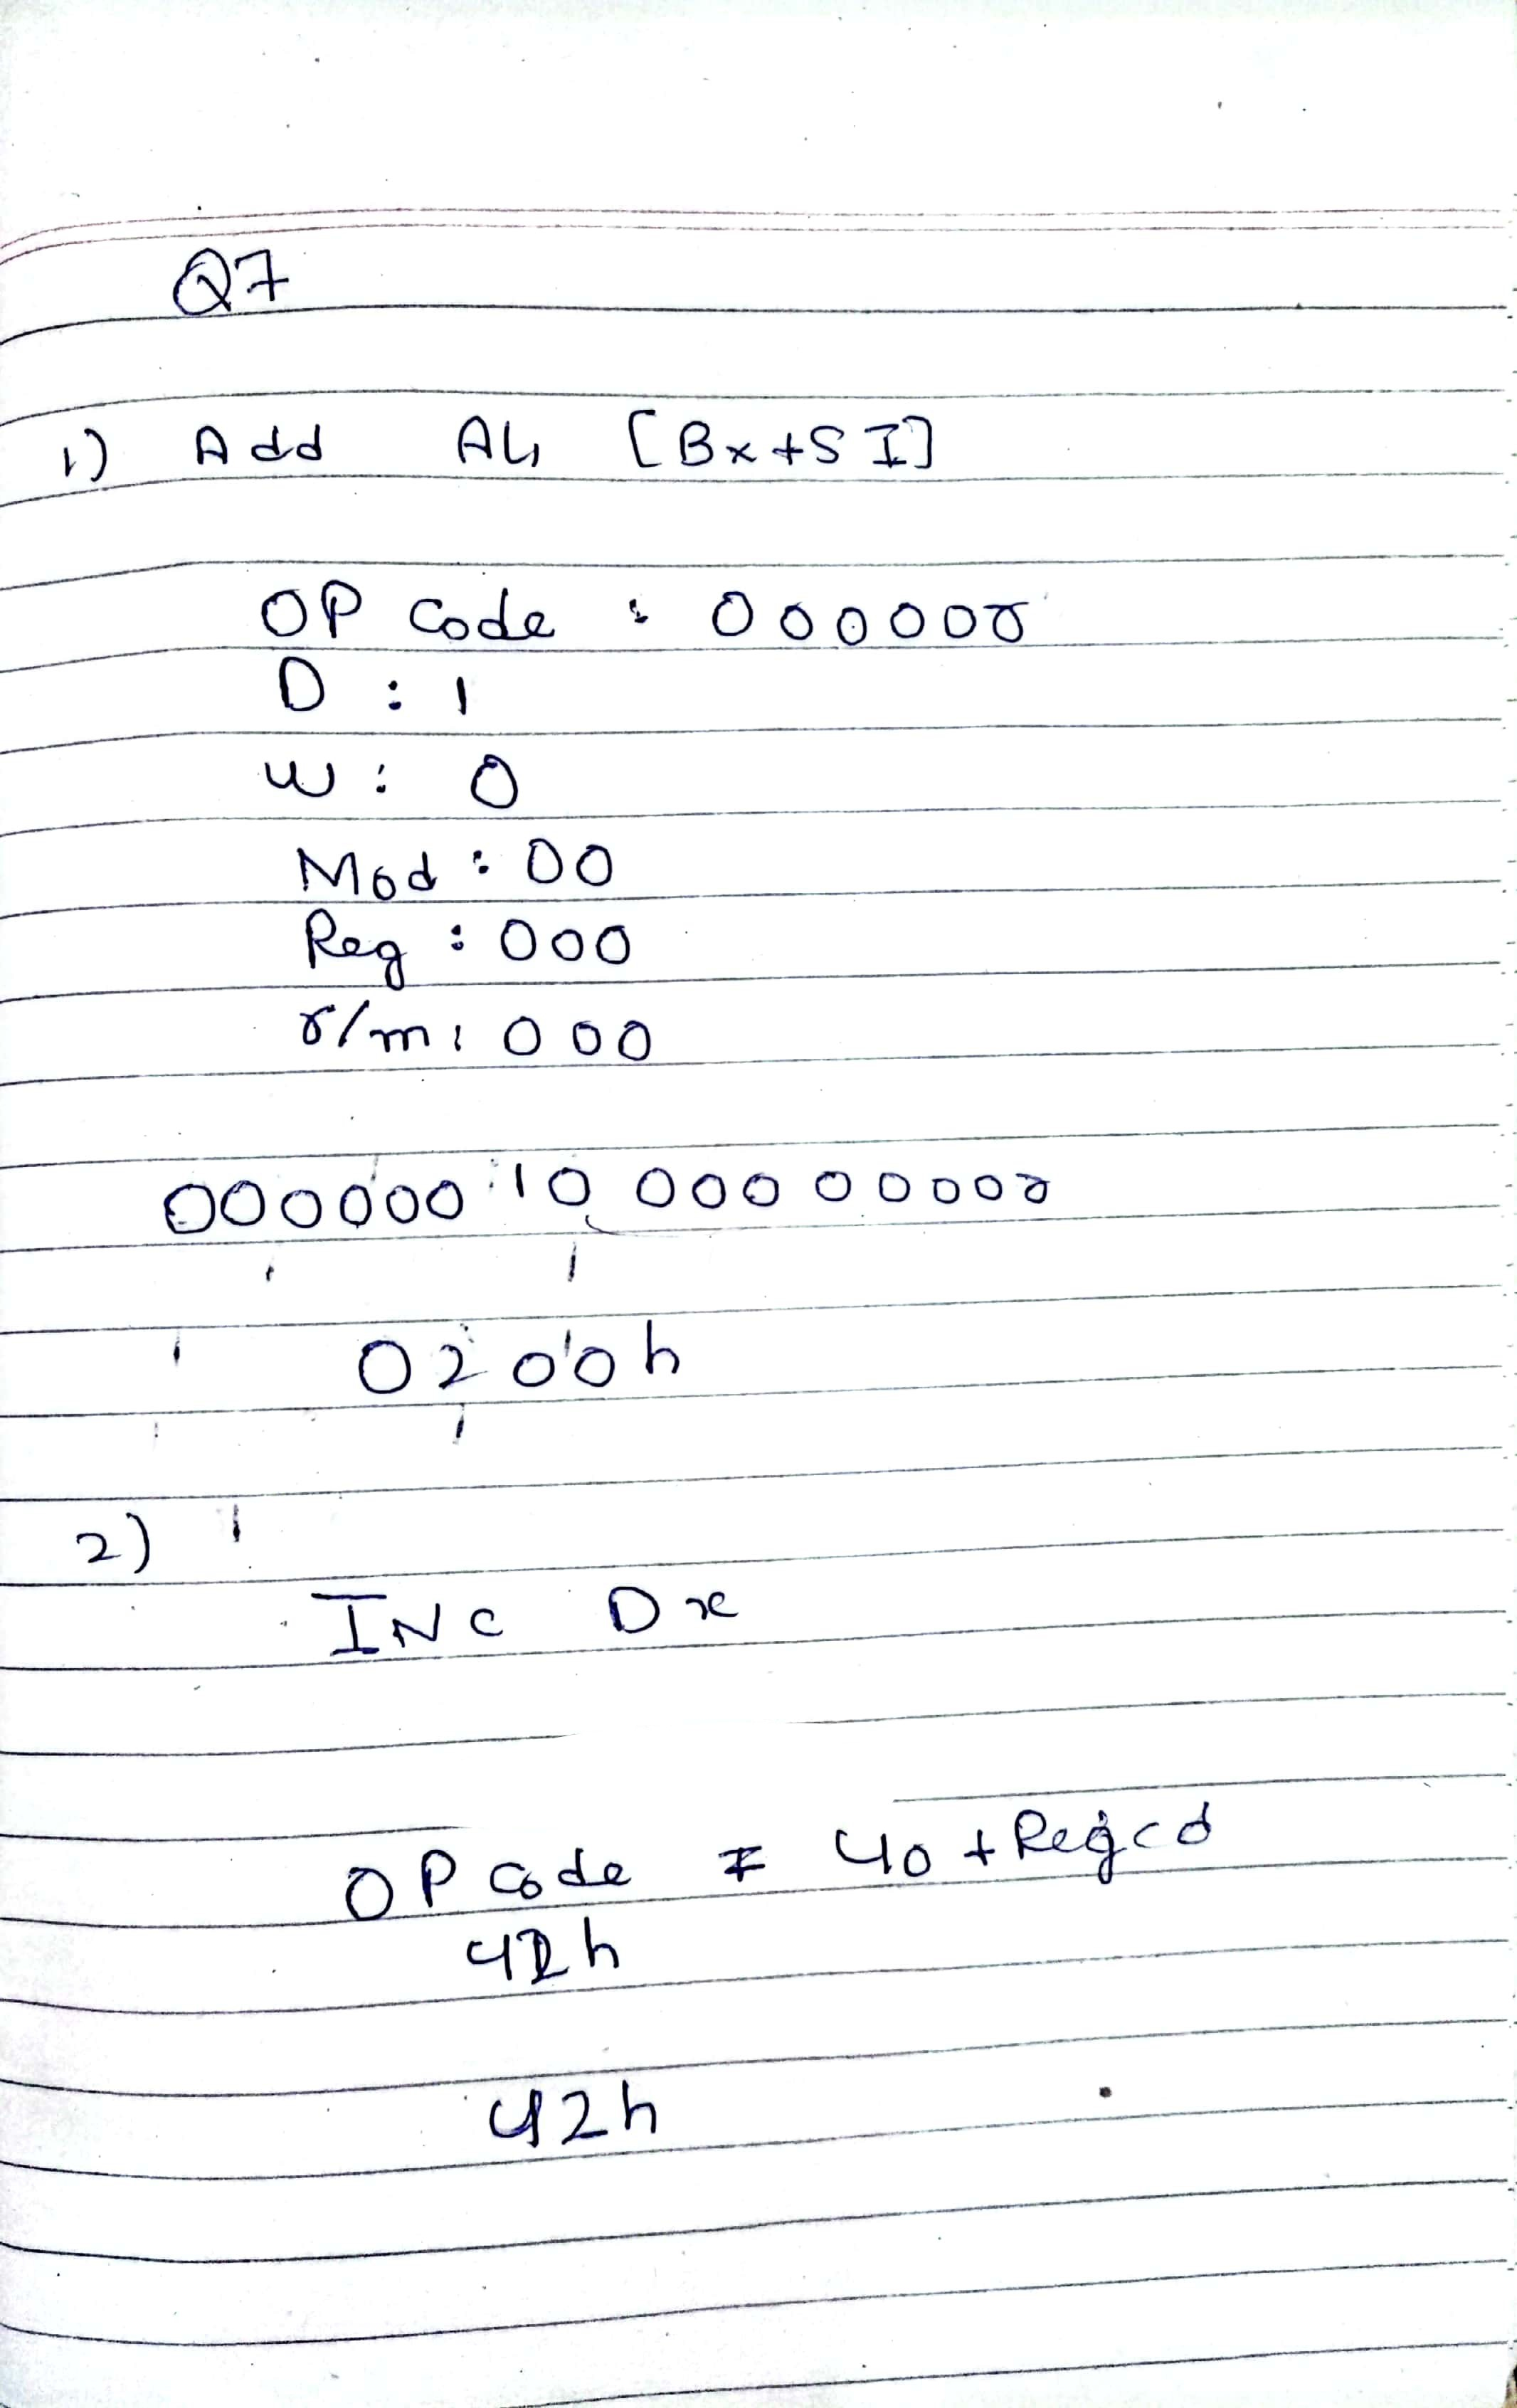 Q7
1) Add AL, [Bx+SI]
OP Code : 000000
D : 1
W : 0
Mod : 00
Reg : 000
r/m : 000
00000010 00000000
0200h
2)
INC Dx
OP Code = 40 + Regcd
42h
42h